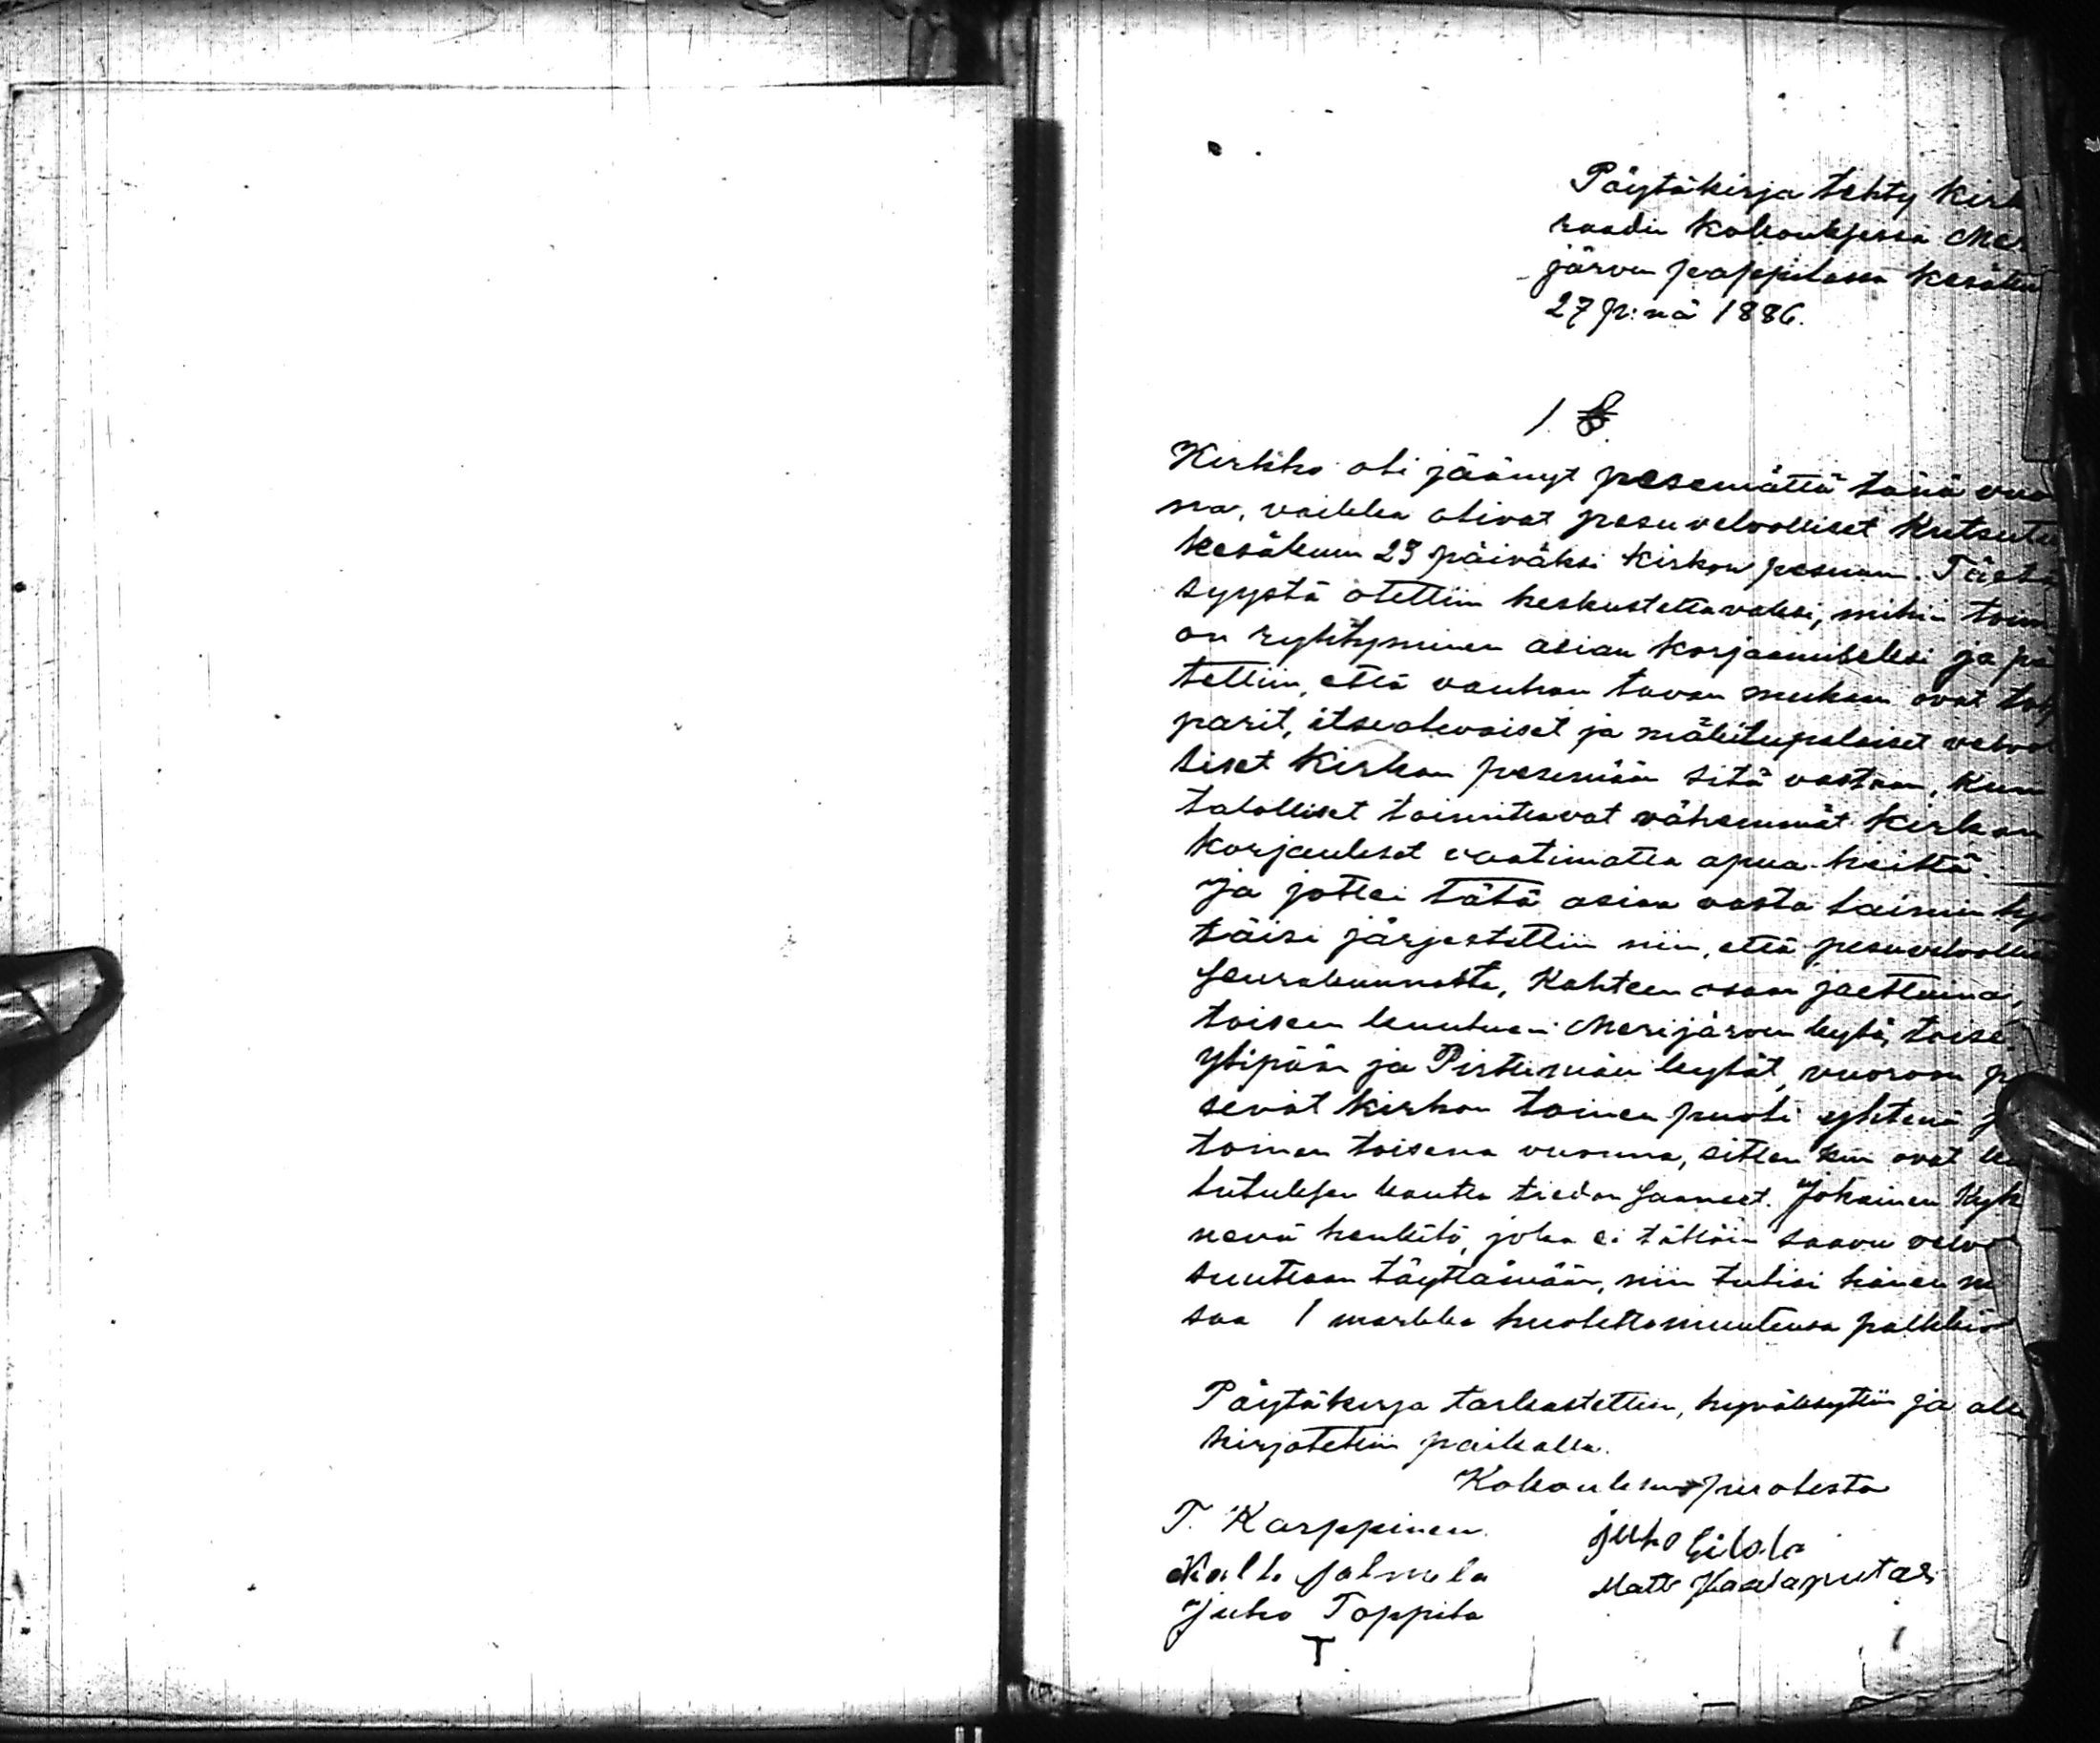 Pöytäkirja tehty Kirk
raadin kokouksessa Mer
järven pappilassa kesäku
27 p:nä 1886.
1 §.
Kirkko oli jäänyt pesemättä tänä vuo
na, vaikka olivat pesuvelvolliset kutsutu
kesäkuun 23 päiväksi kirkon pesuun. Tästä
syystä otettiin keskusteltavaksi, mihin toim
on ryhtyminen asian korjaamiseksi ja pä
tettiin, että vanhan tavan mukaan ovat torp
parit, itsealevaiset ja mäkitupalaiset velvol
liset Kirkon pesemään sitä vastaan, kun
talolliset toimittavat vähemmät kirkon
korjaukset vaatimatta apua heiltä.
Ja jottei tätä asiaa vasta laimin lyö
täisi järjestettiin niin, että pesuvelvollis
seurakunnasta, kahteen osaan jaettuina,
toiseen kuuluen Merijärven kylä, toise
Ylipään ja Pirttimään kylät, vuoroon pe
sevät kirkon toinen puoli yhtenä j
toinen toisena vuonna, sitten kun ovat ku
lutuksen kautta tiedon saaneet. Jokainen kyk
nevä henkilö, joka ei tällöin saavu velvol
suuttaan täyttämään, niin tulisi hänen m
saa 1 markka huolettomuutensa palkkio
Pöytäkirja tarkastettiin, hyväksyttiin ja alle
kirjotettiin paikalla.
Kokouksen puolesta
T. Karppinen Juho Eilola
Kalle Salmela Matti Haalaputas
Juho Toppila
T